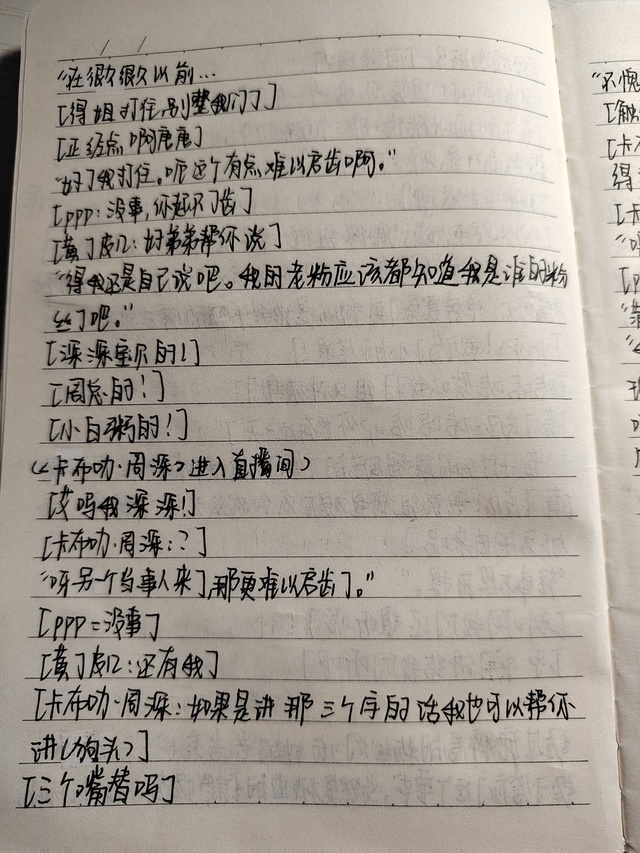 “在很久很久以前…
[得姐打住别整我们了]
[正经点啊唐唐]
“好了我打住。呃这个有点难以启齿啊。”
[ppp：没事，你起不了齿]
[黄了皮に：好弟弟帮你说]
“得我还是自己说吧。我的老粉应该都知道我是谁的粉
丝了吧。”
[深深宝贝的！]
[周总的！]
[小白粥的！]
(《卡布叻·周深》进入直播间)
[艾吗我深深！]
[卡布叻·周深：？]
“呀另一个当事人来了，那更难以启齿了。”
[ppp：没事]
[黄了皮に：还有我]
[卡布叻·周深：如果是讲那三个字的话我也可以帮你
讲(狗头)]
[三个嘴替吗]
“不愧
[触
[卡
得
[卡